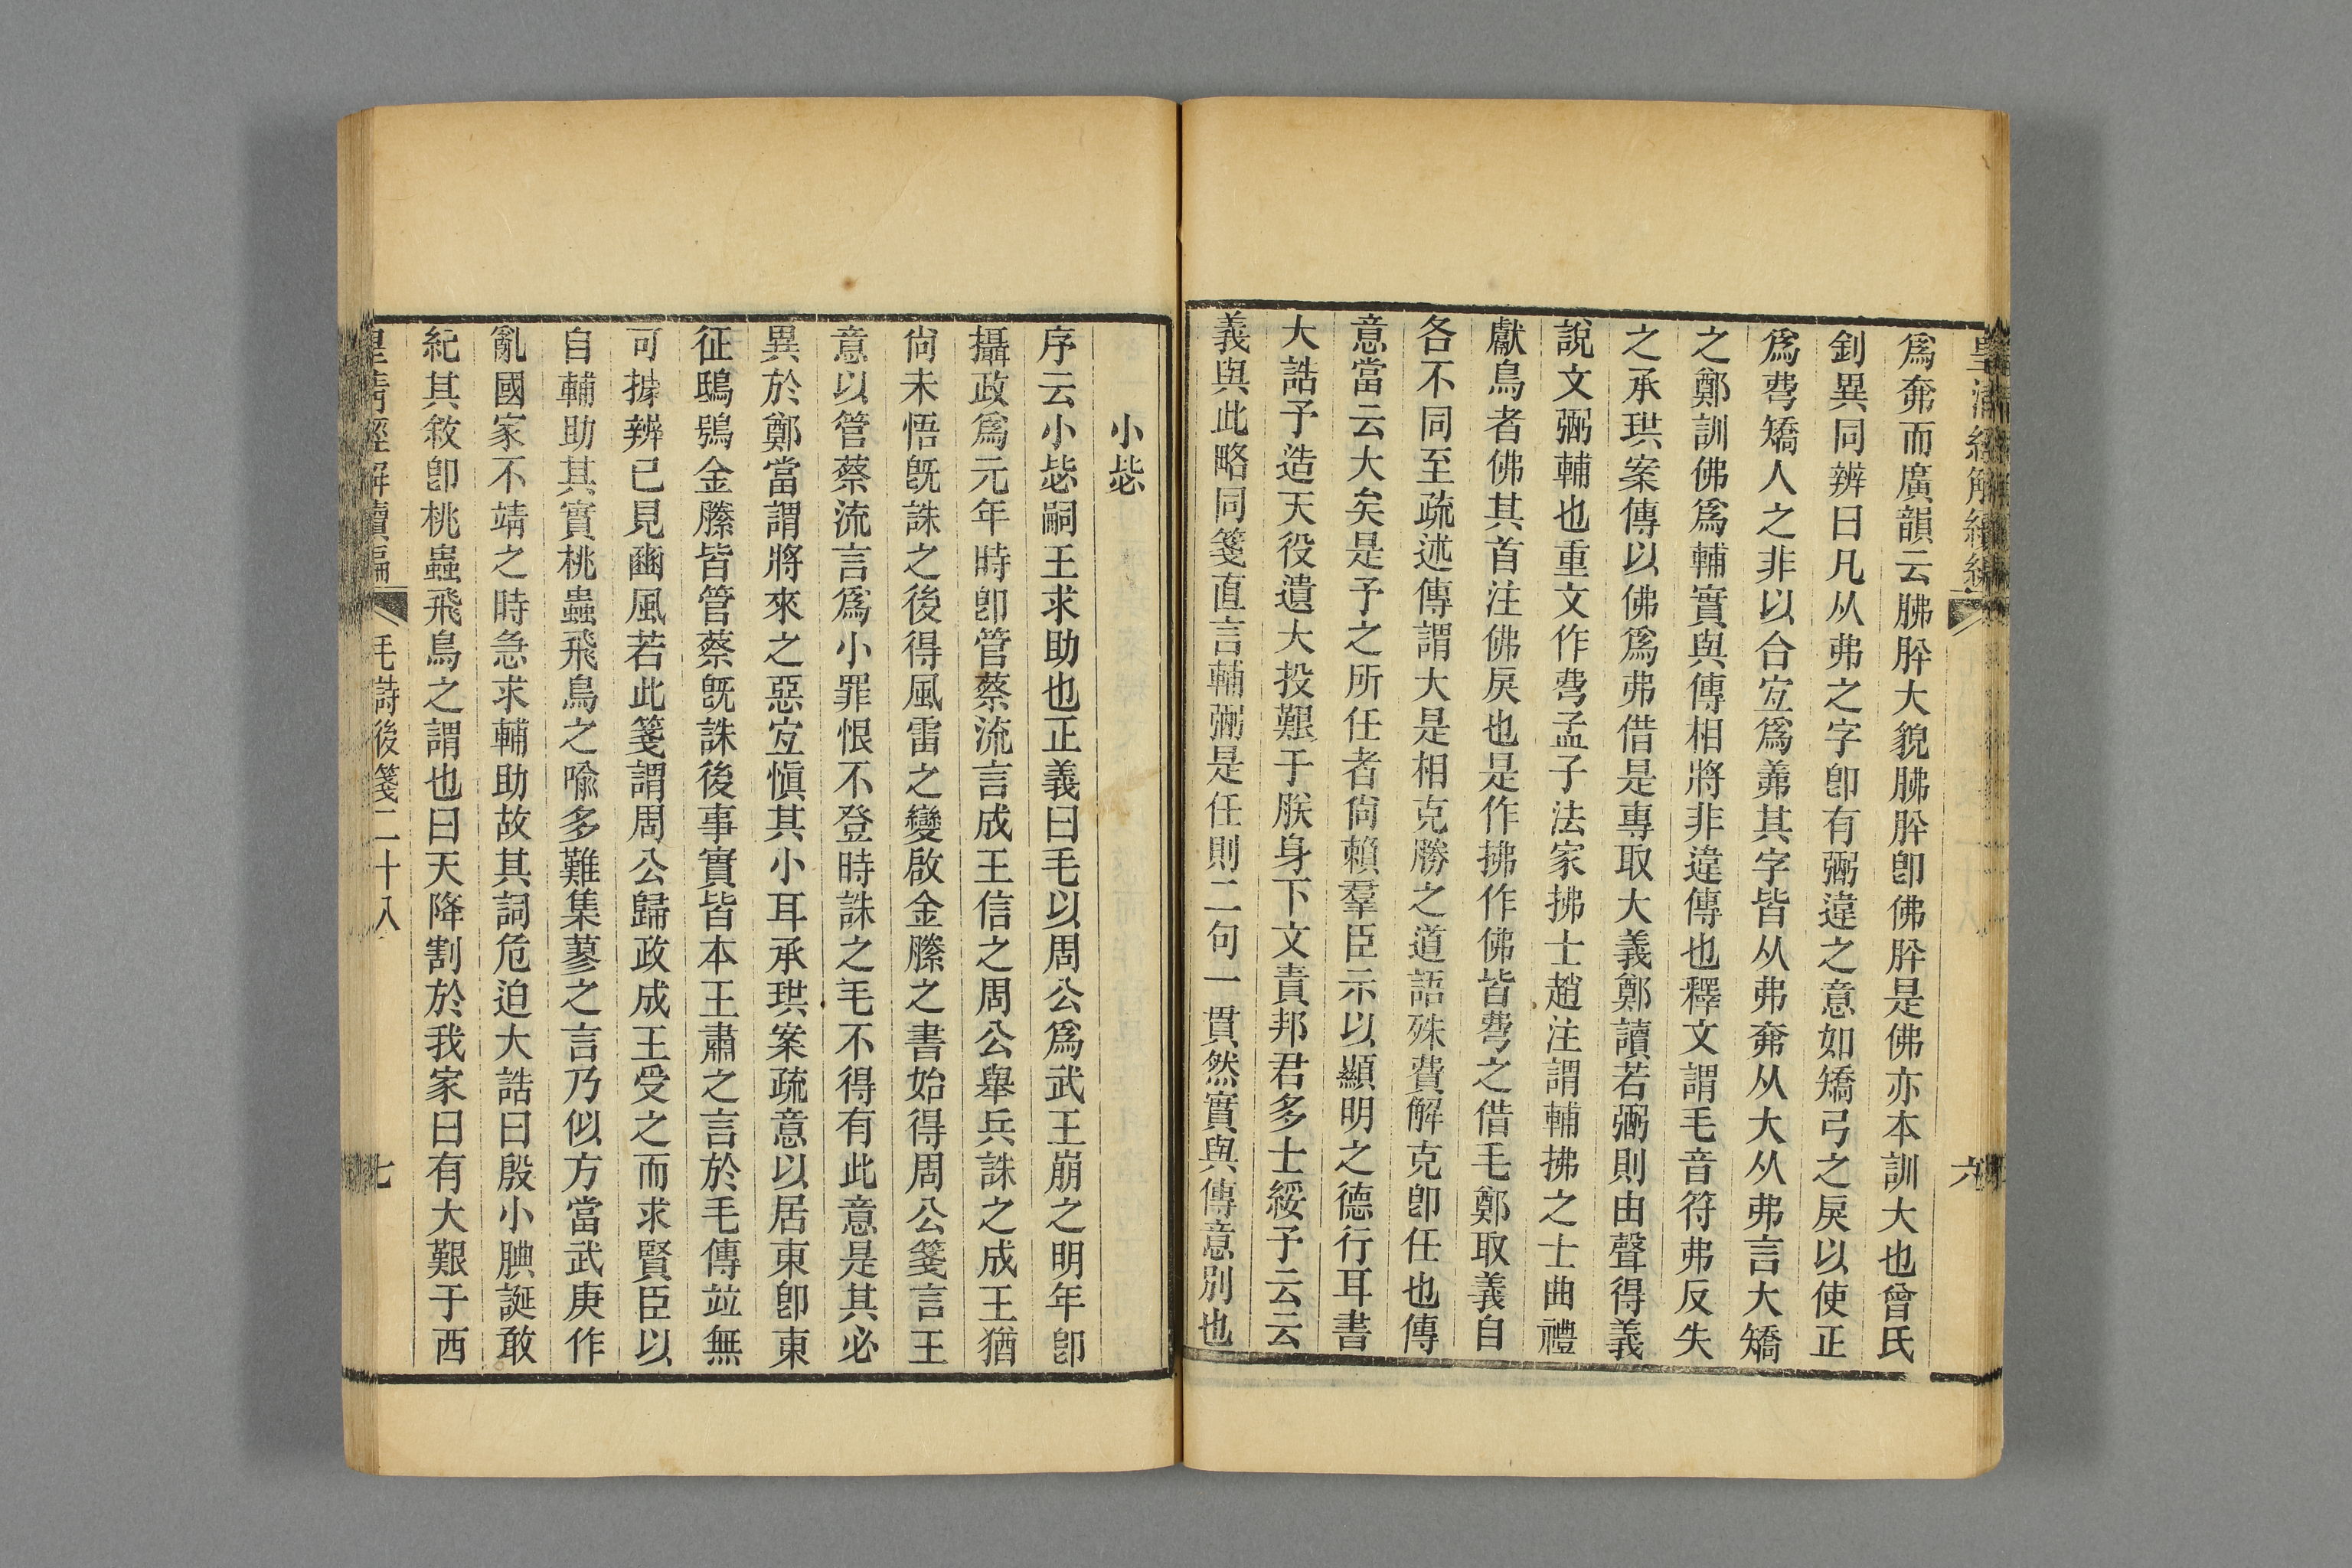 皇清經解續編
六
爲奔而廣韻云胇肸大貌胇肸卽佛肸是佛亦本訓大也曾氏
釗異同辨曰凡从弗之字卽有弼違之意如矯弓之戾以使正
爲㢸矯人之非以合宜爲䒔其字皆从弗奔从大从弗言大矯
之鄭訓佛爲輔實與傳相將非違傳也釋文謂毛音符弗反失
之承珙案傳以佛爲弗借是專取大義鄭讀若弼則由聲得義
說文弼輔也重文作㢸孟子法家拂士趙注謂輔拂之士曲禮
獻鳥者佛其首注佛戾也是作拂作佛皆㢸之借毛鄭取義自
各不同至疏述傳謂大是相克勝之道語殊費解克卽任也傳
意當云大矣是予之所任者尙賴羣臣示以顯明之德行耳書
大誥予造天役遺大投艱于朕身下文責邦君多士綏予云云
義與此略同箋直言輔弼是任則二句一貫然實與傳意別也
小毖
序云小毖嗣王求助也正義曰毛以周公爲武王崩之明年卽
攝政爲元年時卽管蔡流言成王信之周公舉兵誅之成王猶
尙未悟旣誅之後得風雷之變啟金縢之書始得周公箋言王
意以管蔡流言爲小罪恨不登時誅之毛不得有此意是其必
異於鄭當謂將來之惡宜愼其小耳承珙案疏意以居東卽東
征鴟鴞金縢皆管蔡旣誅後事實皆本王肅之言於毛傳竝無
可據辨已見豳風若此箋謂周公歸政成王受之而求賢臣以
自輔助其實桃蟲飛鳥之喩多難集蓼之言乃似方當武庚作
亂國家不靖之時急求輔助故其詞危迫大誥曰殷小腆誕敢
紀其敘卽桃蟲飛鳥之謂也曰天降割於我家曰有大艱于西
皇清經解續編
毛詩後箋二十八
七